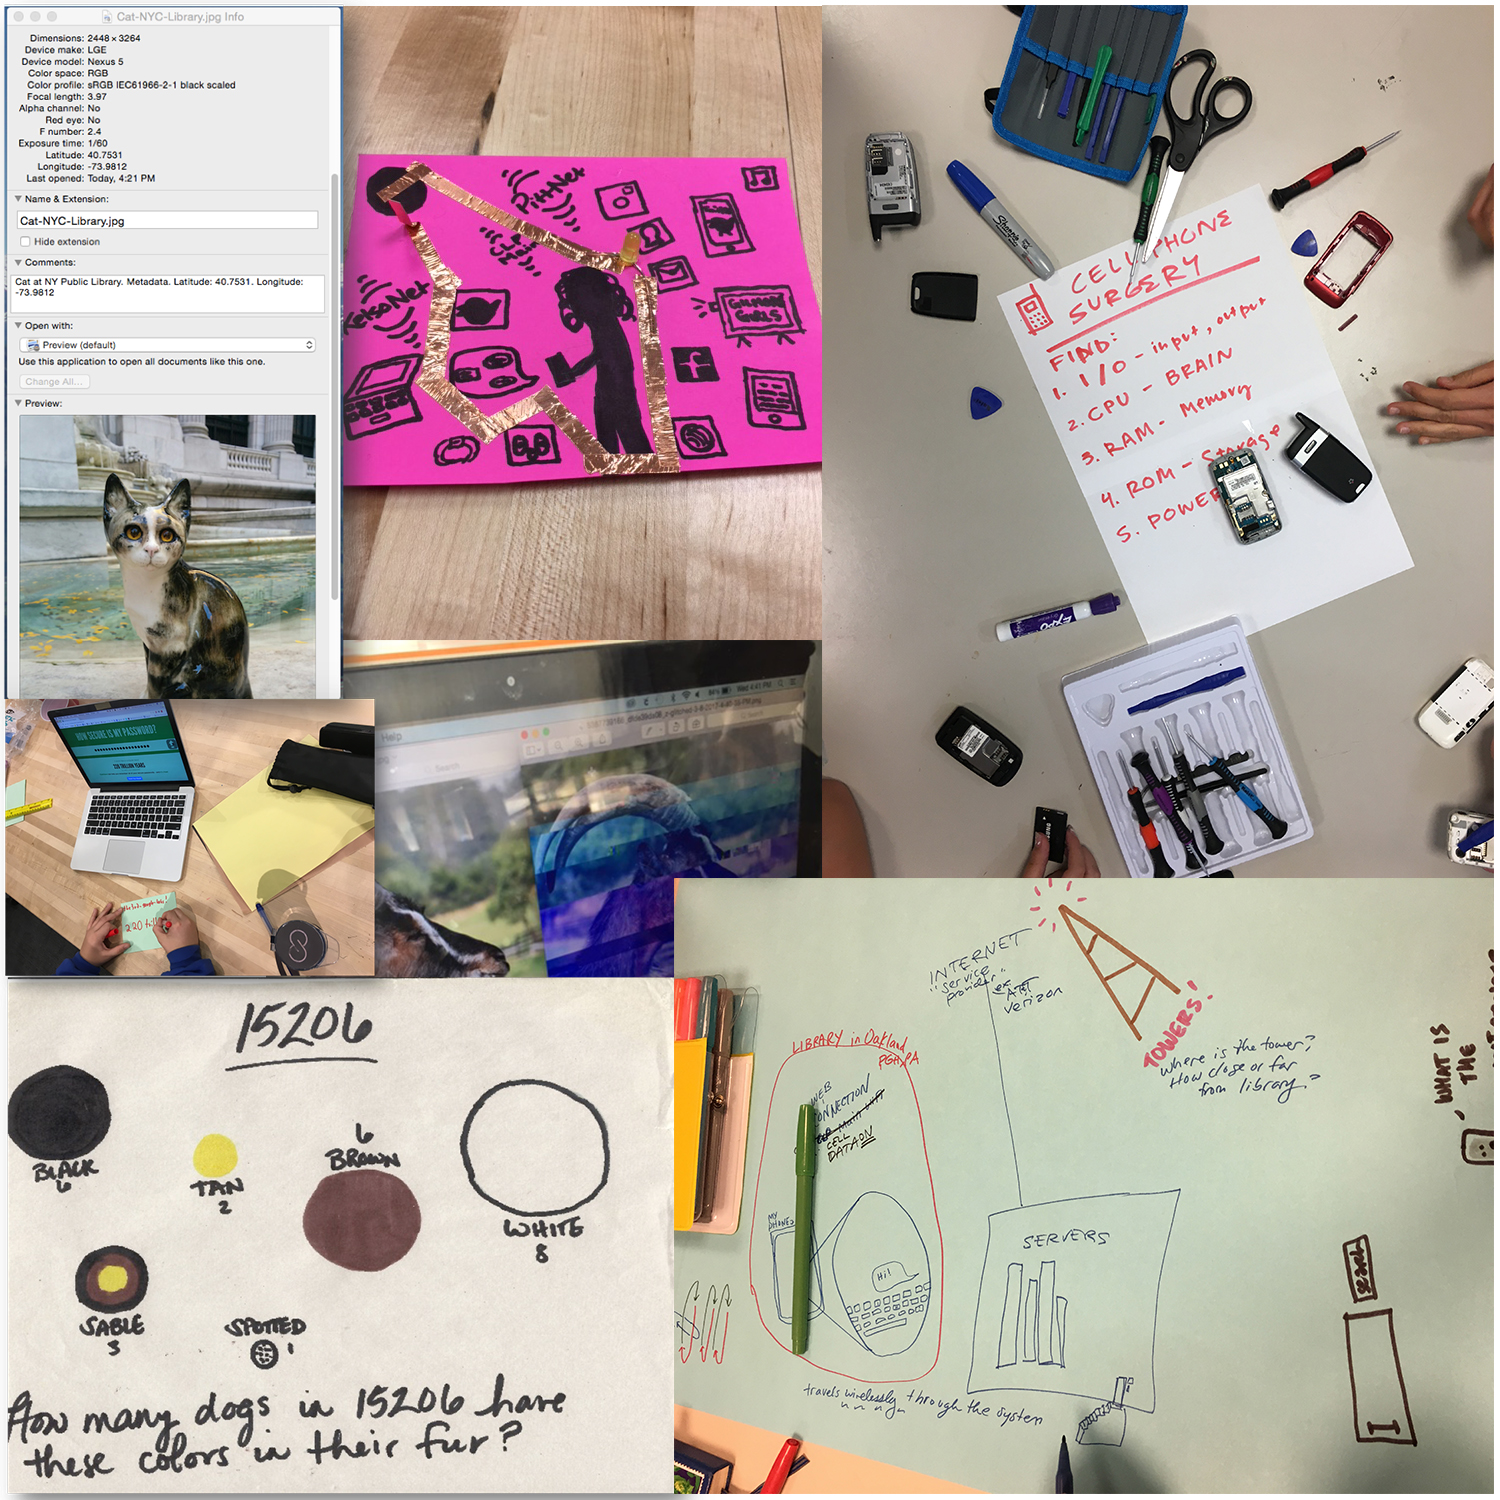 Cat-NYC-Library.jpg Info
Dimensions: 2448 × 3264
Device make: LGE
Device model: Nexus 5
Color space: RGB
Color profile: sRGB IEC61966-2-1 black scaled
Focal length: 3.97
Alpha channel: No
Red eye: No
F number: 2.4
Exposure time: 1/60
Latitude: 40.7531
Longitude: -73.9812
Last opened: Today, 4:21 PM
Name & Extension:
Cat-NYC-Library.jpg
Hide extension
Comments:
Cat at NY Public Library. Metadata. Latitude: 40.7531. Longitude:
-73.9812
Open with:
Preview (default)
Use this application to open all documents like this one.
Change All...
Preview:
PittNet
KelsoNet
GILMORE
GIRLS
Sharpie
CELLPHONE
SURGERY
FIND:
1. I/O - input, output
2. CPU - BRAIN
3. RAM - Memory
4. ROM - Storage
5. POWER
EXPO
HOW SECURE IS MY PASSWORD?
220 TRILLION YEARS
Help
Search
Wed 4:41 PM
15206
BLACK
6
TAN
2
6
BROWN
WHITE
8
SABLE
3
SPOTTED
1
How many dogs in 15206 have
these colors in their fur?
INTERNET
"service
provider"
ex
ATT
Verizon
TOWERS!
Where is the tower?
How close or far
from library?
LIBRARY in Oakland
PGH, PA
WEB
CONNECTION
CELL
DATA ON
MY
PHONE
Hi!
SERVERS
travels wirelessly through the system
WHAT IS
THE